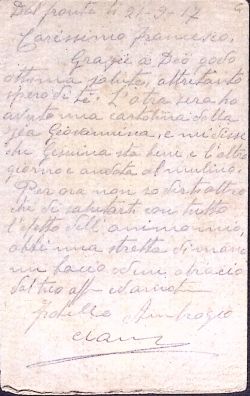 Dal fronte li 21-9-17
Carissimo Francesco,
Grazie a Dio godo
ottima salute, altrettanto
spero di te. L'altra sera ho
avuto una cartolina della
zia Giovannina, e mi disse
che Gesuina sta bene, e l'altro
giorno è andata al mulino.
Per ora non so dirti altro
che di salutarti con tutto
l'affetto dell'animo mio,
abbi una stretta di mano
un bacio ed un abbraccio
dal tuo aff
fratello Ambrogio